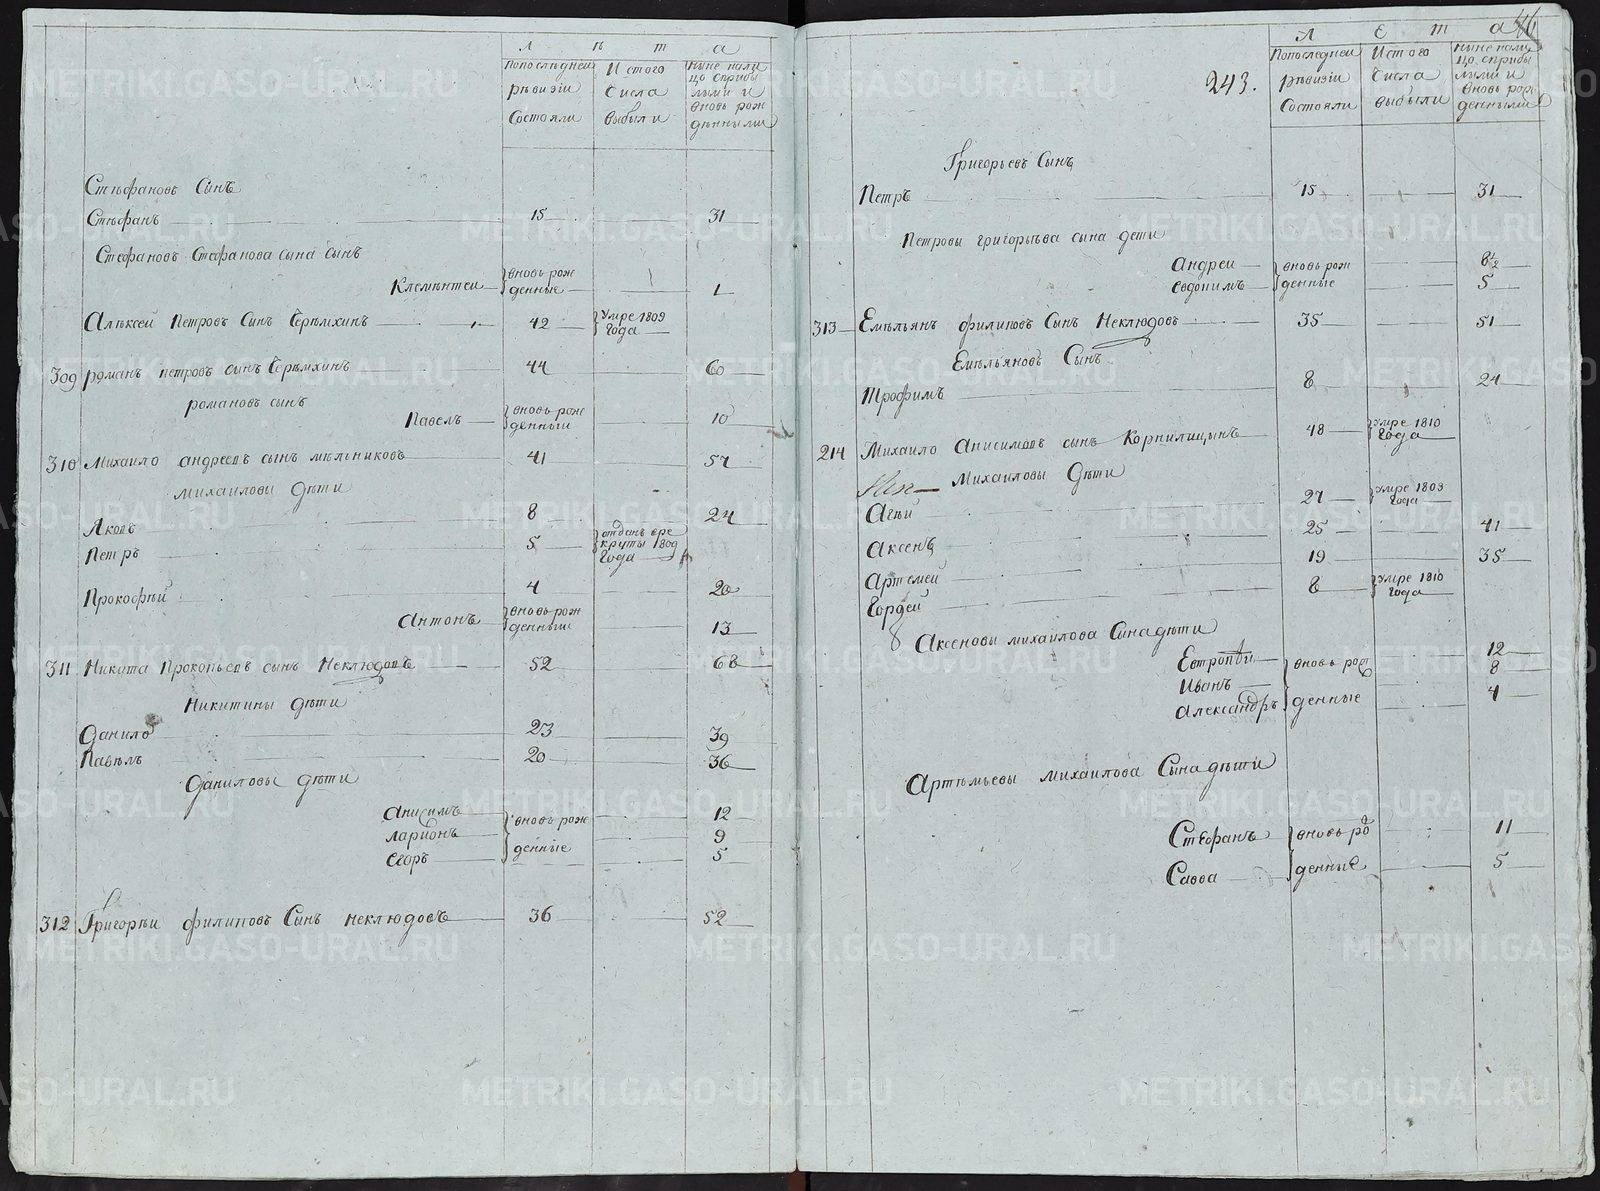 Л ѣ т а
Попослѣдней ревизіи Состояли
Изтого Числа выбыли
Ныне налицо сприбылыми и вновь рожденными
Стѣфановъ Сынъ
Стѣфанъ 15 31
Стефановъ Стефанова сына сынъ
Клементеи вновь рожденные 1
Алѣксей Петровъ Сынъ Серѣмхинъ 42 Умре 1809 Года
309 романъ петровъ сынъ Серѣмхинъ 44 60
романовъ сынъ
Павелъ вновь рожденный 10
310 Михаило андреевъ сынъ мѣльниковъ 41 57
михаиловы дѣти
Яковъ 8 24
Петръ 5 отданъ врекруты 1809 Года
Прокофѣй 4 20
Антонъ вновь рожденный 13
311 Никита Прокопьевъ сынъ Неклюдовъ 52 68
Никитины дѣти
Данило 23 39
Павѣлъ 20 36
Даниловы дѣти
Анисимъ 12
Ларионъ вновь рожденные 9
Егоръ 5
312 Григорѣи филиповъ Сынъ неклюдовъ 36 52
46
243.
Л е т а
Попоследнеи рѣвизіи Состояли
Изтого Числа выбыли
Ныне налицо сприбылыми и вновь рожденными
Григорьевъ Сынъ
Петръ 15 31
Петровы григорьева сына дети
Андреи вновь рожденные 8 1/2
Евдокимъ 5
313 Емѣльянъ филиповъ Сынъ Неклюдовъ 35 51
Емѣльяновъ Сынъ
Трофимъ 8 24
214 Михаило Анисимовъ сынъ Корнилицынъ 48 умре 1810 Года
Михаиловы Дѣти
Агѣи 27 умре 1809 Года
Аксенъ 25 41
Артемей 19 35
Гордей 8 умре 1810 Года
Аксеновы михаилова Сына дѣти
Евтропѣи 12
Иванъ вновь рожденные 8
Александръ 4
Артѣмьевы михаилова Сына дѣти
Стефанъ вновь рожденные 11
Савва 5
METRIKI.GASO-URAL.RU